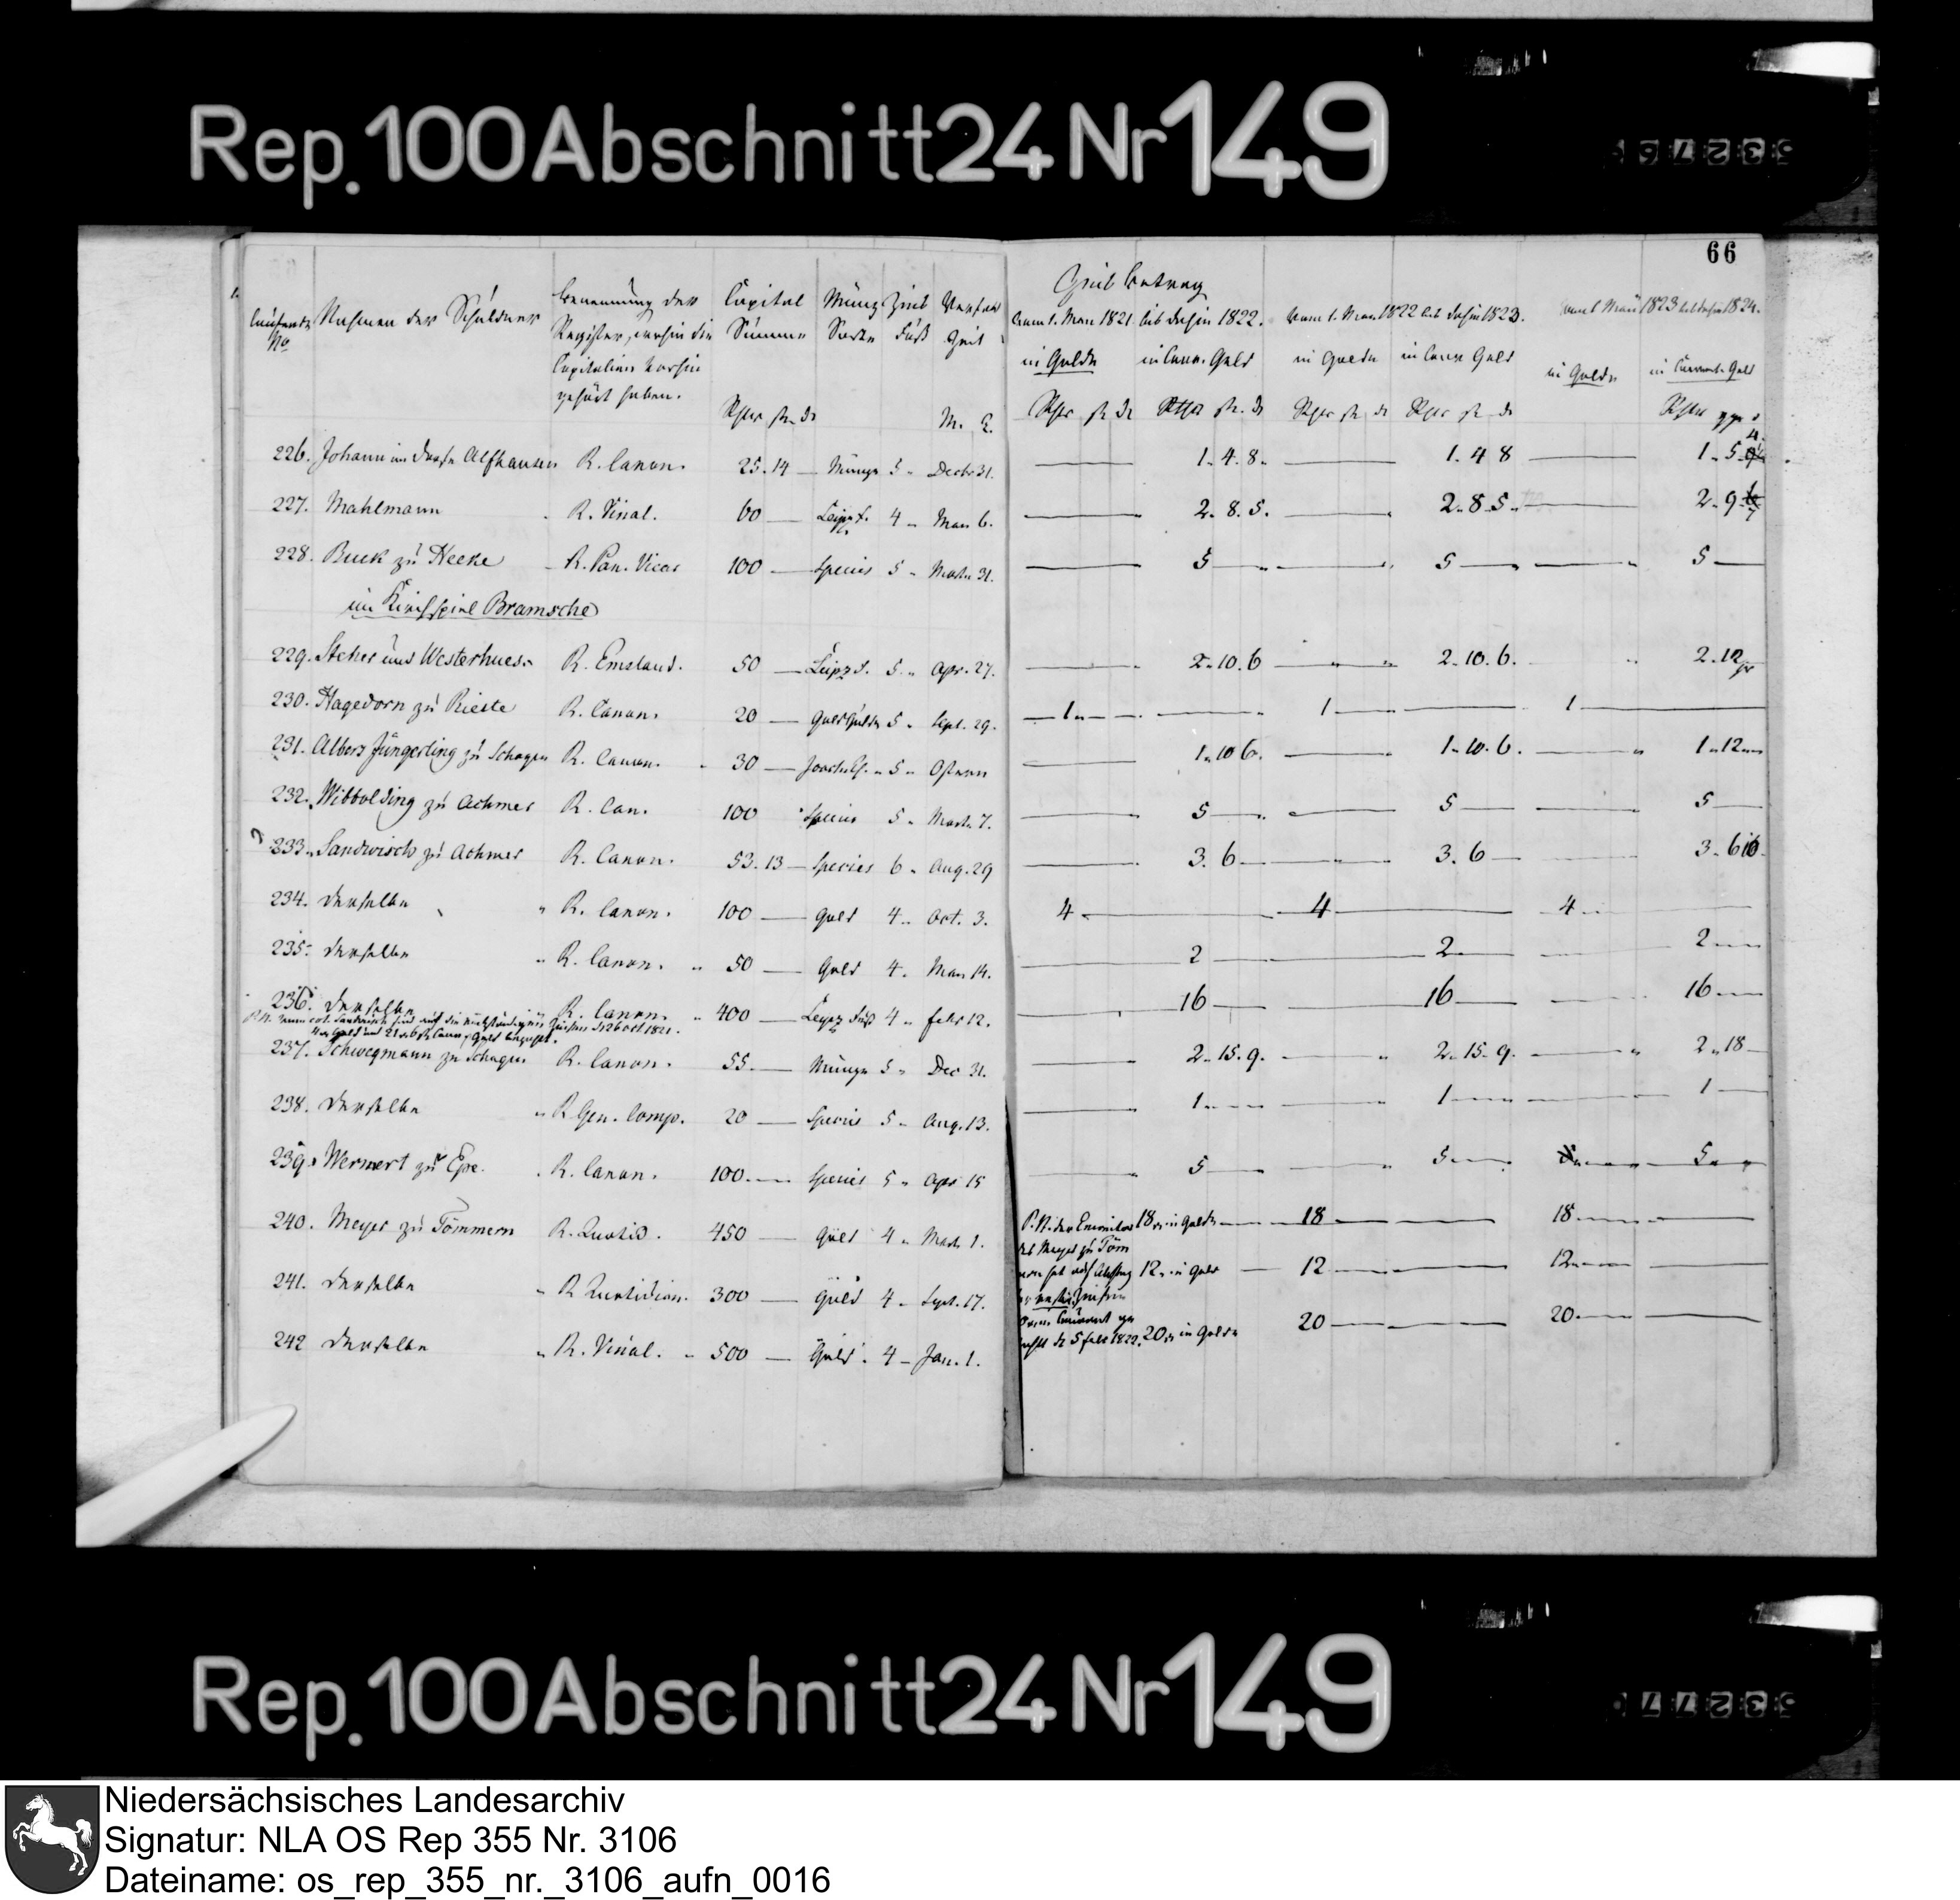 Rep. 100 Abschnitt 24 Nr 149
53276
66
Zins Betrag
laufende No
Nahmen der Schuldner
Benennung der Register, worin die Capitalien vorhin gehört haben.
Capital Summe
Münz Sorte
Zins Fuß
Verfall Zeit
vom 1. May 1821. bis dahin 1822.
vom 1. May 1822 bis dahin 1823.
vom 1 May 1823 bis dahin 1824.
in Golde in Cour. Geld in Golde in Cour Geld in Golde in Courant Geld
226. Johann im Dorfe Alfhausen R. Canon. 25. 14 — Münze 5 „ Decbr 31. — 1. 4. 8. — 1. 4 8 — 1. 5. 4.
227. Mahlmann R. Vinal. 60 — Leipz. f. 4 „ May 6. — 2. 8. 5. — 2. 8. 5. — 2. 9 7
228. Buek zu Heeke R. Pan. Vicar 100 — Species 5 „ Martii 31. — 5 — 5 — 5 —
im Kirchspiel Bramsche
229. Steher und Westerhues. R. Emsland. 50 — Leipz f. 5 „ Apr. 27. — 2. 10. 6 — 2. 10. 6. 2. 12
230. Hagedorn zu Rieste R. Canon. 20 — Goldgulden 5 „ Sept. 29. — 1 — 1 — 1 —
231. Albers Jüngerling zu Schagen R. Canon. 30 — 5 „ Ostern — 1. 10 6. — 1. 10. 6. — 1. 12
232. Wibbolding zu Achmer R. Can. 100 Species 5 „ Mart. 7. — 5 — 5 — 5 —
233. Sandwisch zu Achmer R. Canon. 53. 13 — Species 6 „ Aug. 29 — 3. 6 — 3. 6 — 3. 6
234. Derselbe „ R. Canon. 100 — Gold 4 „ Oct. 3. 4 — 4 — 4 —
235. Derselbe „ R. Canon. „ 50 — Gold 4. May 14. — 2 — 2 — 2
236. Derselbe „ R. Canon. „ 400 — Leipz Fuß 4 „ Febr 12. — 16 — 16 — 16
237. Schwegmann zu Schagen R. Canon. 55. — Münze 5 „ Dec 31. — 2. 15. 9. — 2. 15. 9. — 2. 18 —
238. Derselbe „ R Gen. Comp. 20 — Species 5 „ Aug. 13. — 1 — 1 — 1 —
239. Wermert zu Epe. R. Canon. 100. — Species 5 „ Apr 15 — 5 — 5 — 5
240. Meyer zu Tömmern R. Quotid. 450 — Gold 4 „ Mart. 1. 18 in Golde — 18 — 18 —
241. Derselbe „ R Quotidian. 300 — Gold 4 „ Sept. 17. 12 in Golde — 12 — 12 —
242 Derselbe „ R. Vinal. „ 500 — Gold. 4 — Jan. 1. 20 in Golde 20 — 20 —
Rep. 100 Abschnitt 24 Nr 149
53277
Niedersächsisches Landesarchiv
Signatur: NLA OS Rep 355 Nr. 3106
Dateiname: os_rep_355_nr._3106_aufn_0016